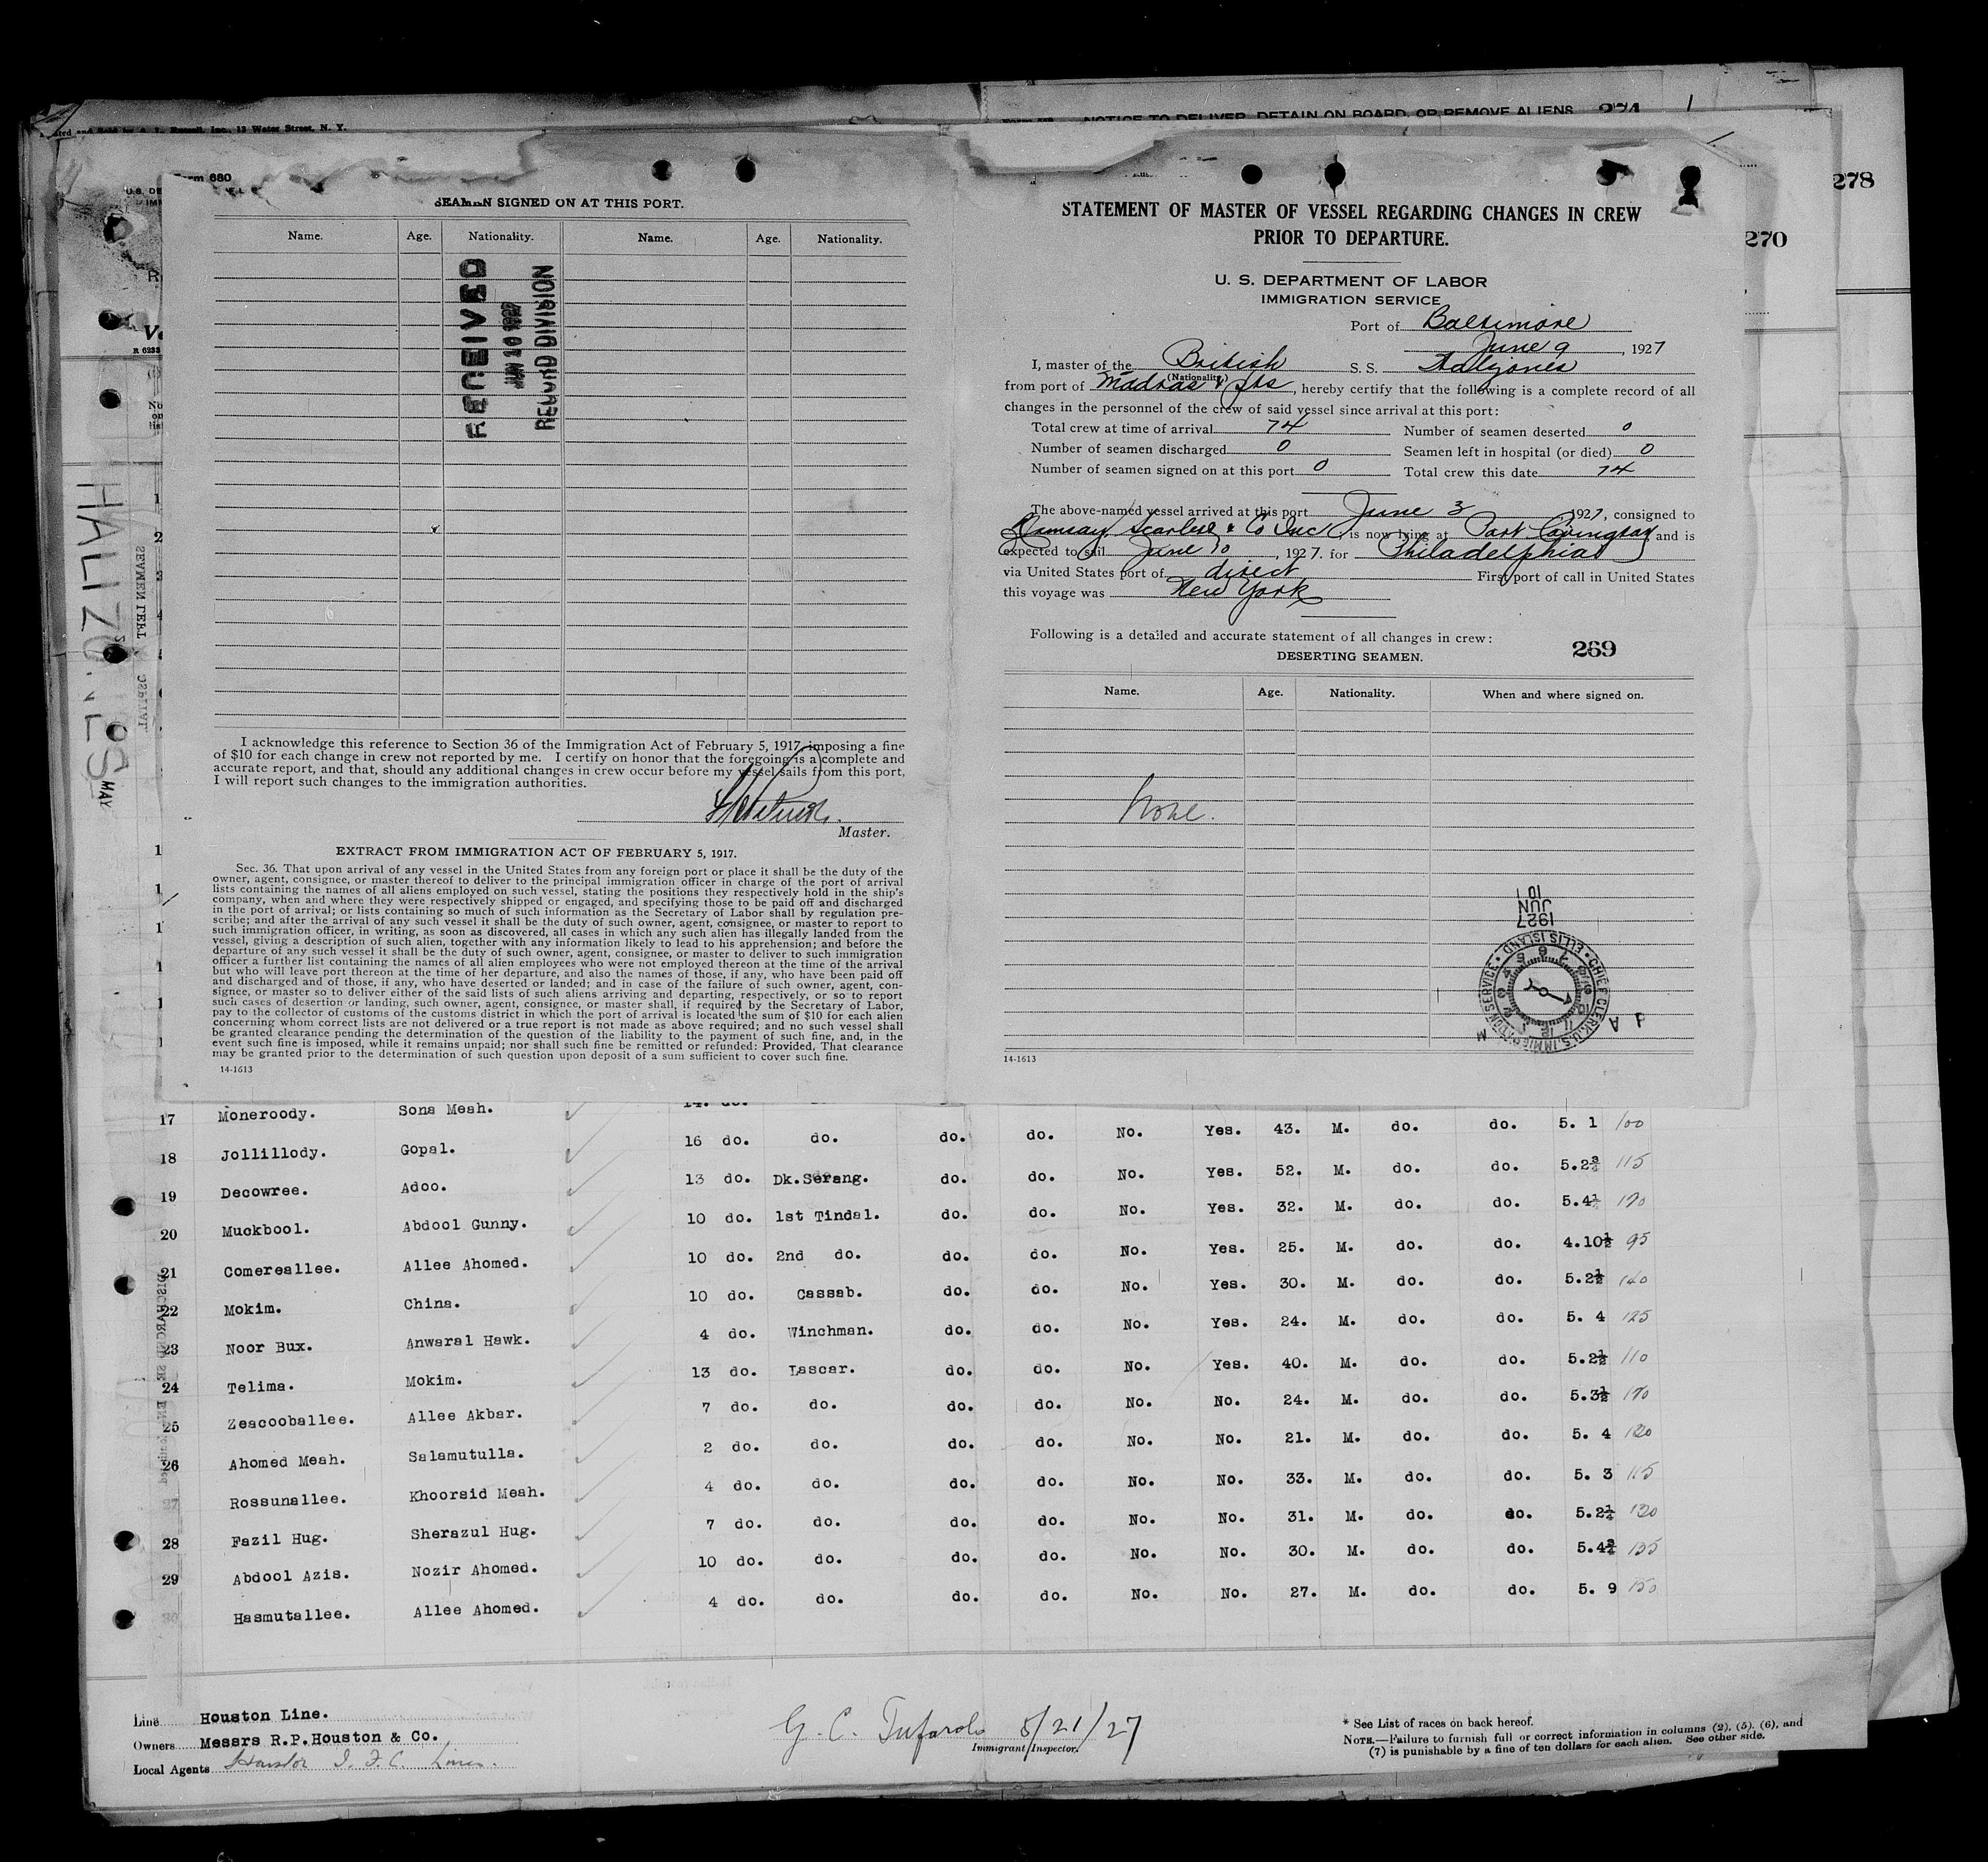 Printed and Sold by A. L. Russell, Inc., 13 Water Street, N. Y.
NOTICE TO DELIVER, DETAIN ON BOARD, OR REMOVE ALIENS 274
278
270
Form 680
SEAMEN SIGNED ON AT THIS PORT.
Name. Age. Nationality. Name. Age. Nationality.
RECEIVED
JUN 10 1927
RECORD DIVISION
I acknowledge this reference to Section 36 of the Immigration Act of February 5, 1917, imposing a fine
of $10 for each change in crew not reported by me. I certify on honor that the foregoing is a complete and
accurate report, and that, should any additional changes in crew occur before my vessel sails from this port,
I will report such changes to the immigration authorities.
Master.
EXTRACT FROM IMMIGRATION ACT OF FEBRUARY 5, 1917.
Sec. 36. That upon arrival of any vessel in the United States from any foreign port or place it shall be the duty of the
owner, agent, consignee, or master thereof to deliver to the principal immigration officer in charge of the port of arrival
lists containing the names of all aliens employed on such vessel, stating the positions they respectively hold in the ship's
company, when and where they were respectively shipped or engaged, and specifying those to be paid off and discharged
in the port of arrival; or lists containing so much of such information as the Secretary of Labor shall by regulation pre-
scribe; and after the arrival of any such vessel it shall be the duty of such owner, agent, consignee, or master to report to
such immigration officer, in writing, as soon as discovered, all cases in which any such alien has illegally landed from the
vessel, giving a description of such alien, together with any information likely to lead to his apprehension; and before the
departure of any such vessel it shall be the duty of such owner, agent, consignee, or master to deliver to such immigration
officer a further list containing the names of all alien employees who were not employed thereon at the time of the arrival
but who will leave port thereon at the time of her departure, and also the names of those, if any, who have been paid off
and discharged and of those, if any, who have deserted or landed; and in case of the failure of such owner, agent, con-
signee, or master so to deliver either of the said lists of such aliens arriving and departing, respectively, or so to report
such cases of desertion or landing, such owner, agent, consignee, or master shall, if required by the Secretary of Labor,
pay to the collector of customs of the customs district in which the port of arrival is located the sum of $10 for each alien
concerning whom correct lists are not delivered or a true report is not made as above required; and no such vessel shall
be granted clearance pending the determination of the question of the liability to the payment of such fine, and, in the
event such fine is imposed, while it remains unpaid; nor shall such fine be remitted or refunded: Provided, That clearance
may be granted prior to the determination of such question upon deposit of a sum sufficient to cover such fine.
14-1613
STATEMENT OF MASTER OF VESSEL REGARDING CHANGES IN CREW
PRIOR TO DEPARTURE.
U. S. DEPARTMENT OF LABOR
IMMIGRATION SERVICE
Port of Baltimore
June 9, 1927
I, master of the British S. S. Halizones
(Nationality)
from port of Madras & Pts, hereby certify that the following is a complete record of all
changes in the personnel of the crew of said vessel since arrival at this port:
Total crew at time of arrival 74 Number of seamen deserted 0
Number of seamen discharged 0 Seamen left in hospital (or died) 0
Number of seamen signed on at this port 0 Total crew this date 74
The above-named vessel arrived at this port June 3 1927, consigned to
Ramsay Scarlett & Co Inc, is now lying at Port Covington and is
expected to sail June 10, 1927. for Philadelphia
via United States port of direct First port of call in United States
this voyage was New York
Following is a detailed and accurate statement of all changes in crew:
269
DESERTING SEAMEN.
Name. Age. Nationality. When and where signed on.
None.
1927 JUN 10
CHIEF CLERK U.S. IMMIGRATION SERVICE ELLIS ISLAND
14-1613
HALIZONES
MAY
17 Moneroody. Sona Meah. 14. do. 
16 do. do. do. do. No. Yes. 43. M. do. do. 5. 1 100
18 Jollillody. Gopal.
13 do. Dk.Serang. do. do. No. Yes. 52. M. do. do. 5.2¾ 115
19 Decowree. Adoo.
10 do. 1st Tindal. do. do. No. Yes. 32. M. do. do. 5.4½ 170
20 Muckbool. Abdool Gunny.
10 do. 2nd do. do. do. No. Yes. 25. M. do. do. 4.10½ 95
21 Comereallee. Allee Ahomed.
10 do. Cassab. do. do. No. Yes. 30. M. do. do. 5.2½ 140
22 Mokim. China.
4 do. Winchman. do. do. No. Yes. 24. M. do. do. 5. 4 125
23 Noor Bux. Anwaral Hawk.
13 do. Lascar. do. do. No. Yes. 40. M. do. do. 5.2½ 110
24 Telima. Mokim.
7 do. do. do. do. No. No. 24. M. do. do. 5.3½ 170
25 Zeacooballee. Allee Akbar.
2 do. do. do. do. No. No. 21. M. do. do. 5. 4 120
26 Ahomed Meah. Salamutulla.
4 do. do. do. do. No. No. 33. M. do. do. 5. 3 115
27 Rossunallee. Khoorsid Meah.
7 do. do. do. do. No. No. 31. M. do. do. 5.2¼ 120
28 Fazil Hug. Sherazul Hug.
10 do. do. do. do. No. No. 30. M. do. do. 5.4¾ 135
29 Abdool Azis. Nozir Ahomed.
4 do. do. do. do. No. No. 27. M. do. do. 5. 9 150
30 Hasmutallee. Allee Ahomed.
Line Houston Line.
Owners Messrs R.P.Houston & Co.
Local Agents Houston Lines.
G. C. Tufarolo 5/21/27
Immigrant Inspector.
* See List of races on back hereof.
NOTE.—Failure to furnish full or correct information in columns (2), (5), (6), and
(7) is punishable by a fine of ten dollars for each alien. See other side.